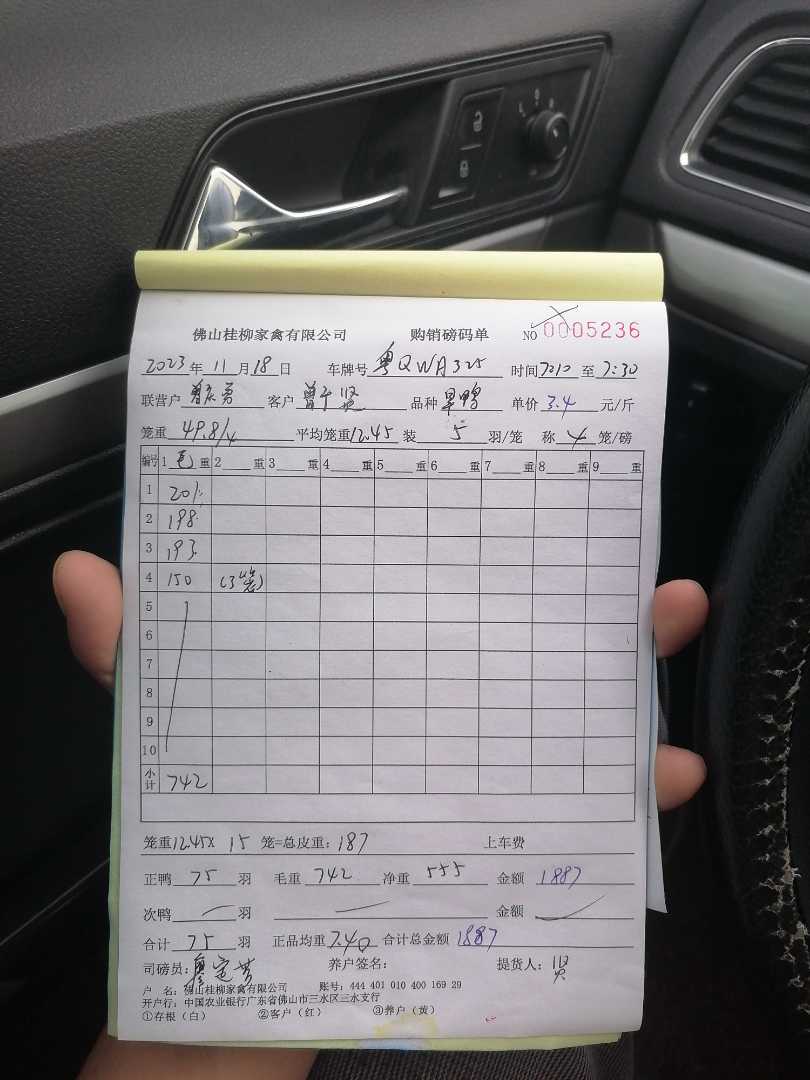 佛山桂柳家禽有限公司 购销磅码单 NO 0005236
2023年11月18日 车牌号 粤QWA325 时间 7:10 至 7:30
联营户 客户 曾 贤 品种 旱鸭 单价 3.4 元/斤
笼重 49.8/4 平均笼重 12.45 装 5 羽/笼 称 4 笼/磅
编号 1 毛 重 2 重 3 重 4 重 5 重 6 重 7 重 8 重 9 重
1 201
2 198
3 193
4 150 (3笼)
5
6
7
8
9
10
小计 742
笼重 12.45 X 15 笼=总皮重: 187 上车费
正鸭 75 羽 毛重 742 净重 555 金额 1887
次鸭 羽 金额
合计 75 羽 正品均重 7.40 合计总金额 1887
司磅员: 廖定芳 养户签名: 提货人: 贤
户 名: 佛山桂柳家禽有限公司 账号: 444 401 010 400 169 29
开户行: 中国农业银行广东省佛山市三水区三水支行
①存根(白) ②客户(红) ③养户(黄)